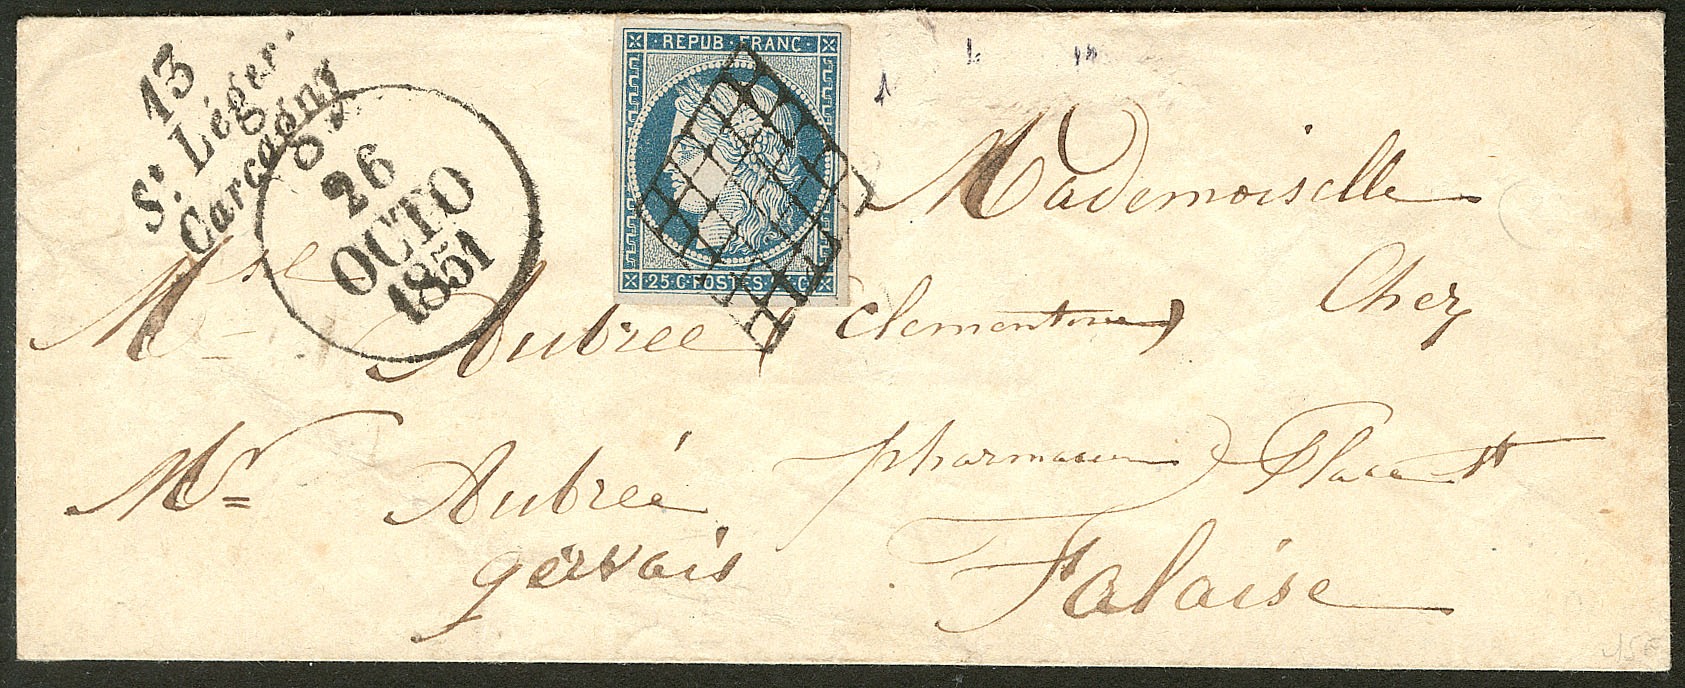 13
St. Léger.
Carcagny
26
OCTO
1851
REPUB·FRANC·
25·C·POSTES·25·C
Mademoiselle
Mse Aubrée Clementine Chez
Mr Aubrée pharmacien Place St
gervais Falaise
15€